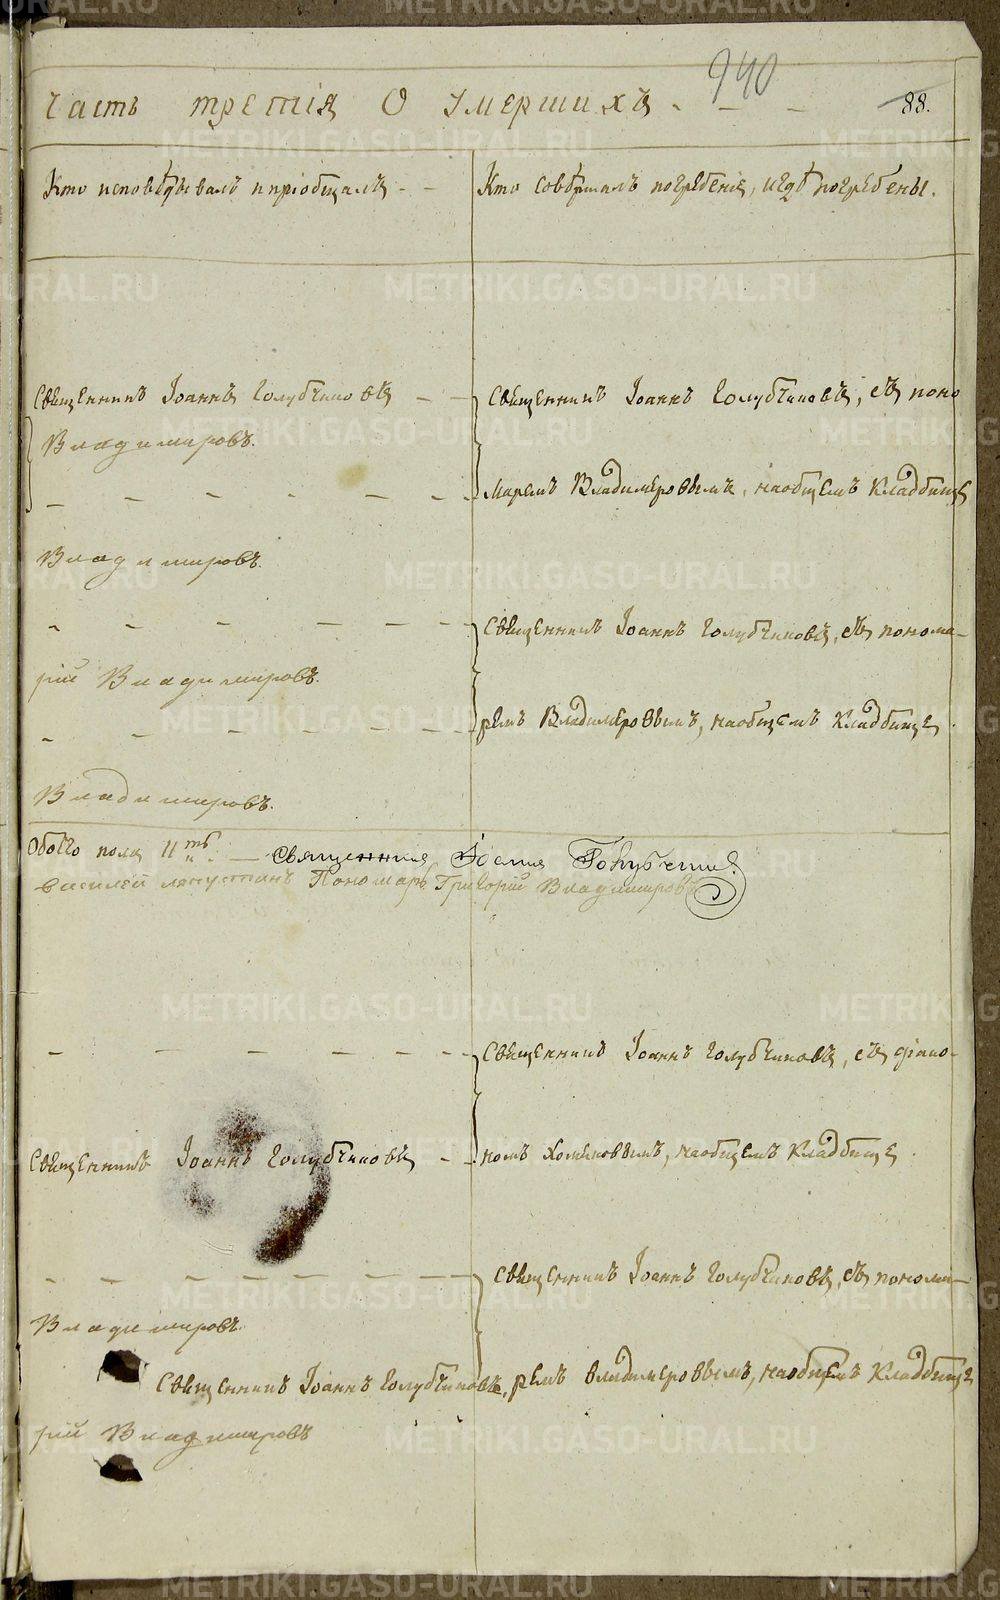 940
Часть третія О умершихъ - - -
88.
Кто исповѣдывалъ и пріобщалъ - -
Кто совершалъ погребеніе, и гдѣ погребены.
Священникъ Іоаннъ Голубчиковъ - -
Священникъ Іоаннъ Голубчиковъ, съ поно
Владимировъ.
маремъ Владимеровымъ, на общемъ Кладбище
Владимировъ.
Священникъ Іоаннъ Голубчиковъ, съ понома-
рій Владимировъ.
ремъ Владимеровымъ, на общемъ Кладбище.
Владимировъ.
Обоего пола 11ть. — Священникъ Іоаннъ Голубчиковъ
василей Пономарь Григорій Владимировъ
Священникъ Іоаннъ Голубчиковъ, съ діако-
Священникъ Іоаннъ Голубчиковъ - -
номъ Хомяковымъ, на общемъ Кладбище.
Священникъ Іоаннъ Голубчиковъ, съ понома-
Владимировъ
Священникъ Іоаннъ Голубчиковъ.
ремъ владимеровымъ, на общемъ Кладбище
рій Владимировъ
METRIKI.GASO-URAL.RU